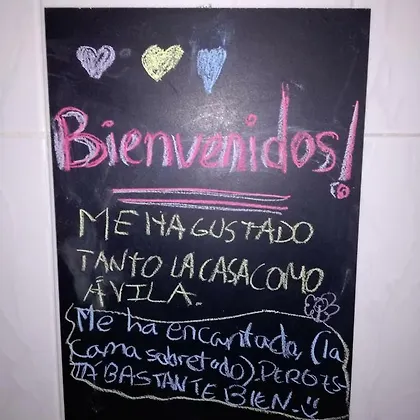 Bienvenidos!
ME HA GUSTADO
TANTO LA CASA COMO
ÁVILA.
Me ha encantada, (la
cama sobretodo). PERO ES
TTA BASTANTE BIEN. :)